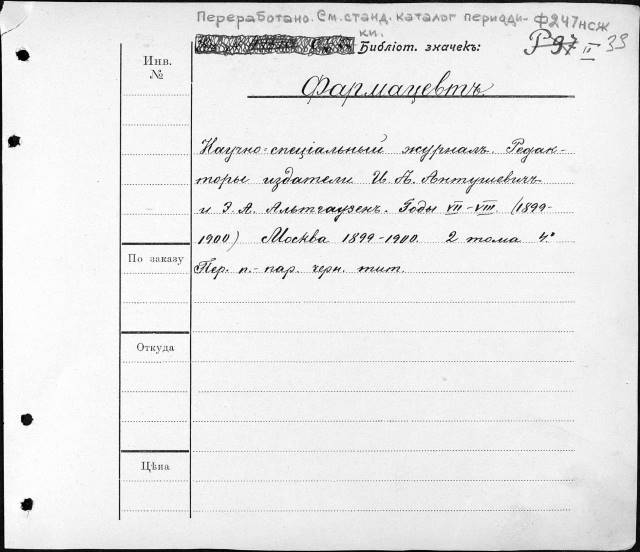 Переработано. См. станд. каталог периоди- Ф247нсж
ки.
Библіот. значекъ: P 97 II 39
Инв.
№
Фармацевтъ
Научно-спеціальный журналъ. Редак-
торы издатели И. А. Антушевичъ
и Э. А. Альтгаузенъ. Годы VII–VIII. (1899-
1900) Москва 1899-1900. 2 тома 4°
По заказу
Пер. п.- пар. черн. тит.
Откуда
Цѣна